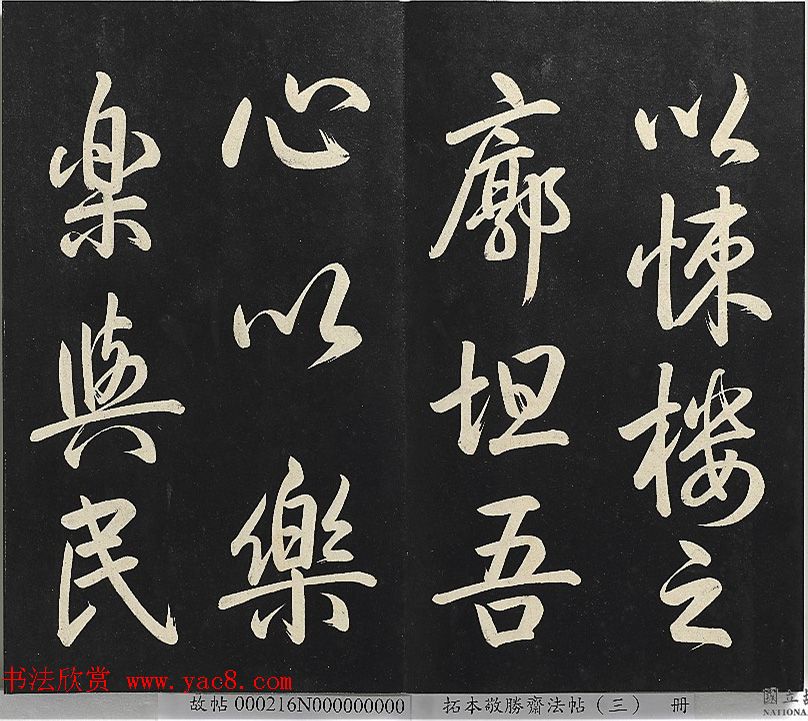 以悚楼之
廓坦吾
心以樂
楽與民
书法欣赏 www.yac8.com
故帖 000216N000000000
拓本敬勝齋法帖（三） 册
國立
NATIONA